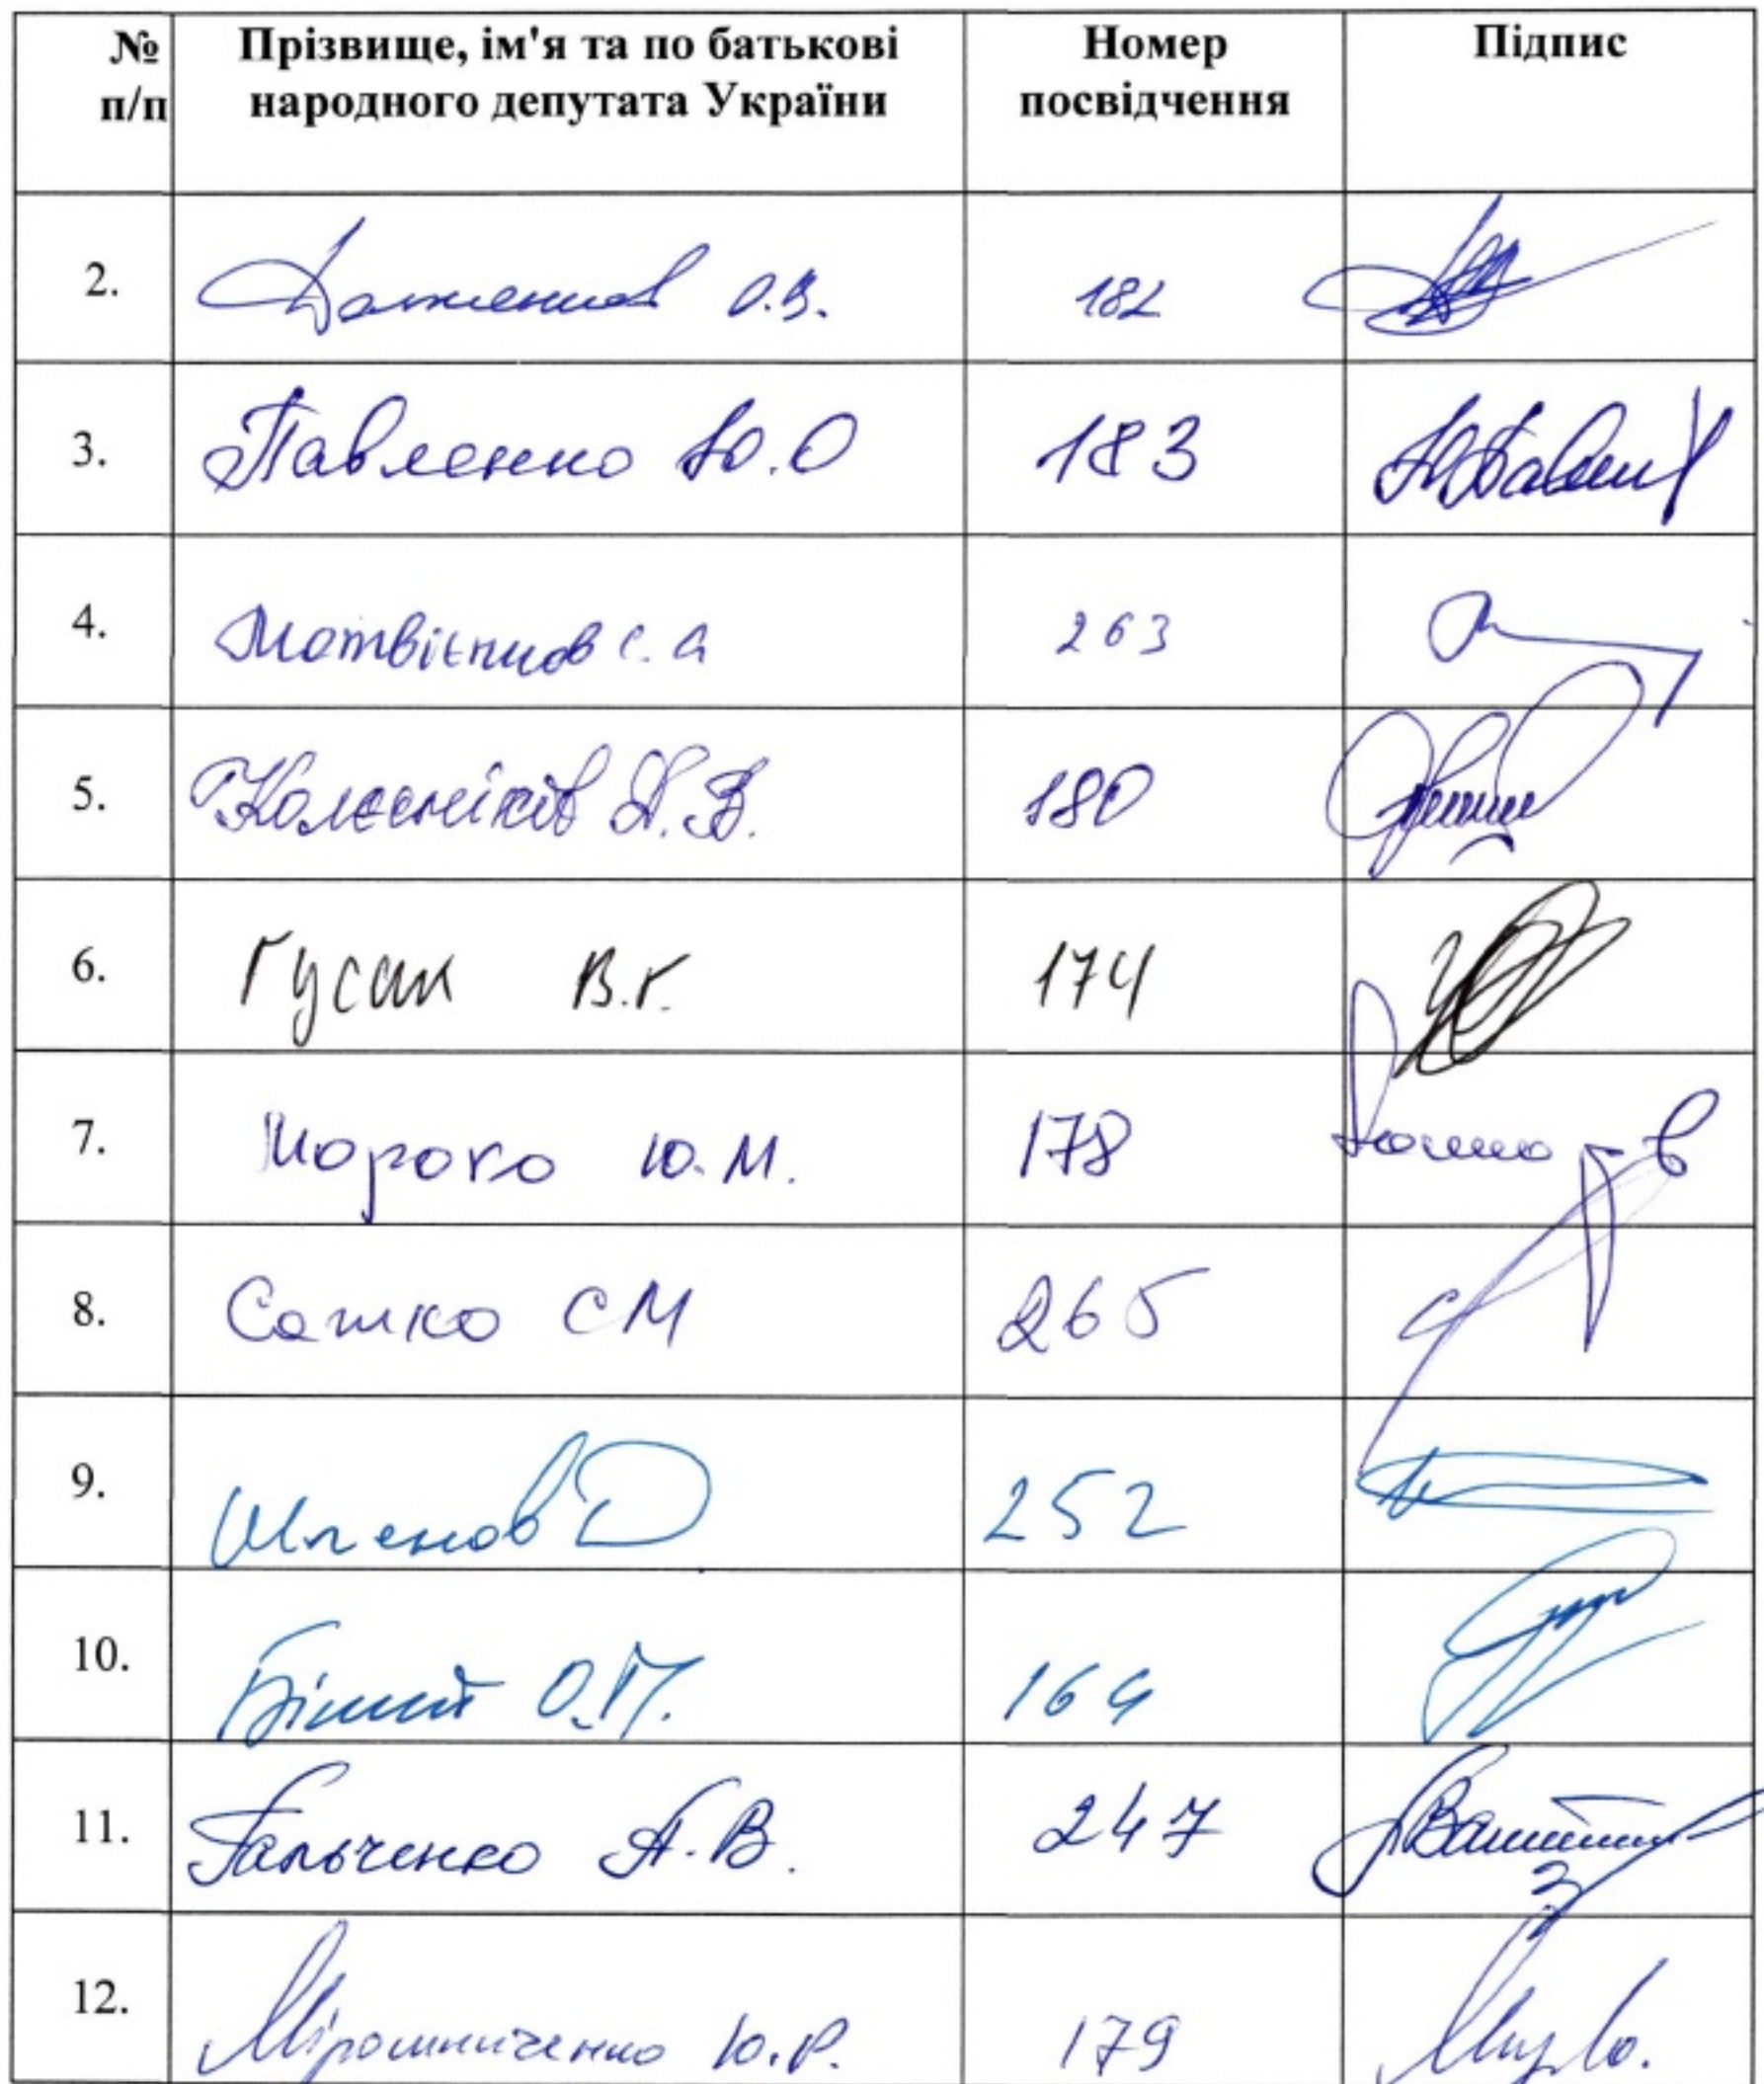 № Прізвище, ім'я та по батькові Номер Підпис
п/п народного депутата України посвідчення
2. О.В. 182
3. Павленко Ю.О 183
4. Матвієнков С.А 263
5. Колєсніков Д.В. 180
6. Гусак В.Г. 174
7. Мороко Ю.М. 178
8. Сажко СМ 265
9. Шпенов Д 252
10. О.П. 164
11. Гальченко А.В. 247
12. Мірошниченко Ю.Р. 179